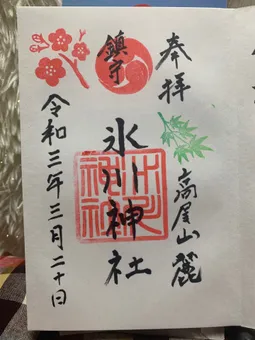 奉拝
高尾山麓
鎮守
氷川神社
令和三年三月二十日